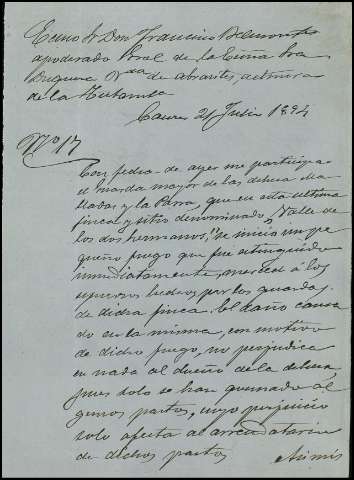 Excmo Sr Don Francisco Belmonte
apoderado Gral de la Excma Sra
Duquesa Vda de Abrantes, administra
de la
Coria 21 Julio 1894
Nº 17
Con fecha de ayer me participa
el Guarda mayor de las dehesas Ma
lladas y la Parra, que en esta ultima
finca y sitio denominado, "Valle de
los dos hermanos," se inició un pe
queño fuego que fue estinguido
inmediatamente, merced á los
esfuerzos hechos por los guardas
de dicha finca. El daño causa
do en la misma, con motivo
de dicho fuego, no perjudica
en nada al dueño de la dehesa,
pues solo se han quemado al
gunos pastos, cuyo perjuicio
solo afecta al arrendatario
de dichos pastos